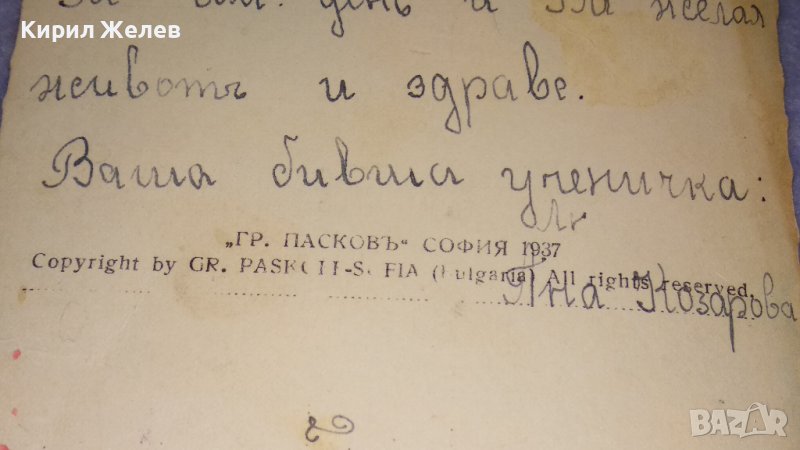 Кирил Желев
день и Ви желая
животъ и здраве.
Ваша бивша ученичка:
„ГР. ПАСКОВЪ“ СОФИЯ 1937
Copyright by GR. PASKOFF-SOFIA (Bulgaria) All rights reserved.
Яна Козарова
BAZAR